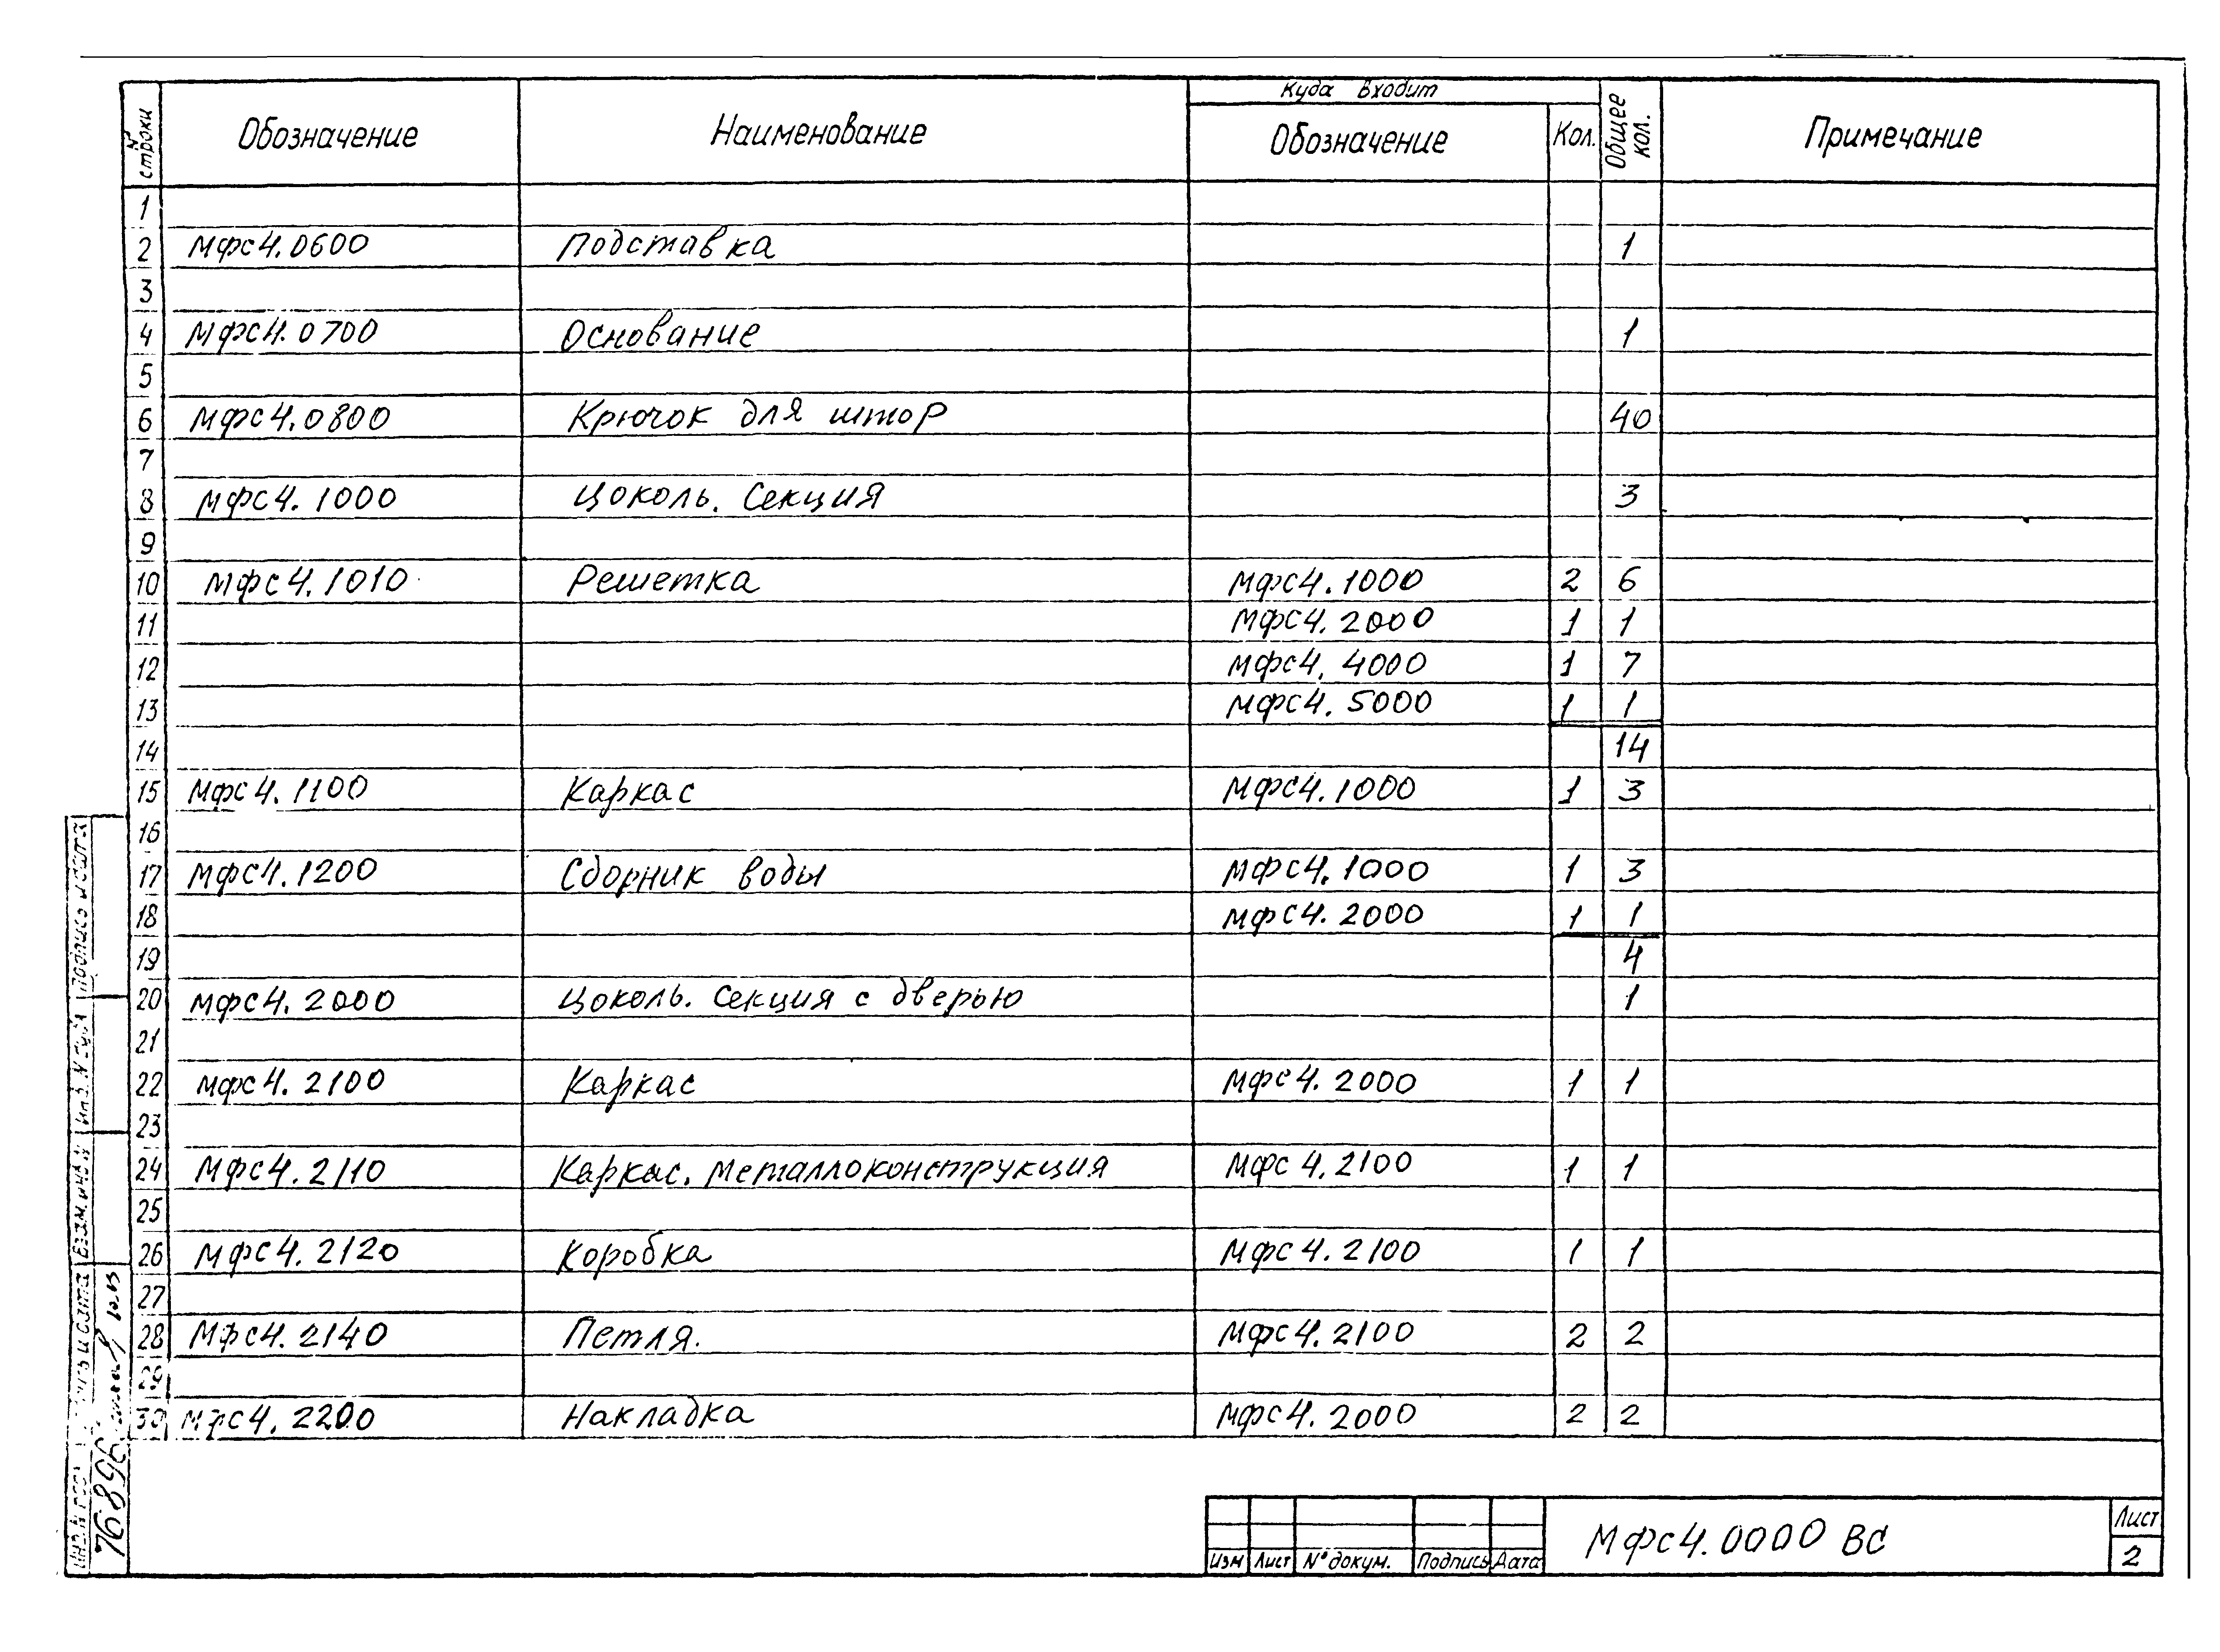 № строки Обозначение Наименование Куда входит Обозначение Кол. Общее кол. Примечание
1
2 Мфс4.0600 Подставка 1
3
4 Мфс4.0700 Основание 1
5
6 Мфс4.0800 Крючок для штор 40
7
8 Мфс4.1000 Цоколь. Секция 3
9
10 Мфс4.1010 Решетка Мфс4.1000 2 6
11 Мфс4.2000 1 1
12 Мфс4.4000 1 7
13 Мфс4.5000 1 1
14 14
15 Мфс4.1100 Каркас Мфс4.1000 1 3
16
17 Мфс4.1200 Сборник воды Мфс4.1000 1 3
18 Мфс4.2000 1 1
19 4
20 Мфс4.2000 Цоколь. Секция с дверью 1
21
22 Мфс4.2100 Каркас Мфс4.2000 1 1
23
24 Мфс4.2110 Каркас. Металлоконструкция Мфс4.2100 1 1
25
26 Мфс4.2120 Коробка Мфс4.2100 1 1
27
28 Мфс4.2140 Петля. Мфс4.2100 2 2
29
30 Мфс4.2200 Накладка Мфс4.2000 2 2
Подпись и дата
Инв. N дубл
Взам. инв. N
76896
Изм Лист N° докум. Подпись Дата
Мфс4.0000 ВС
Лист
2